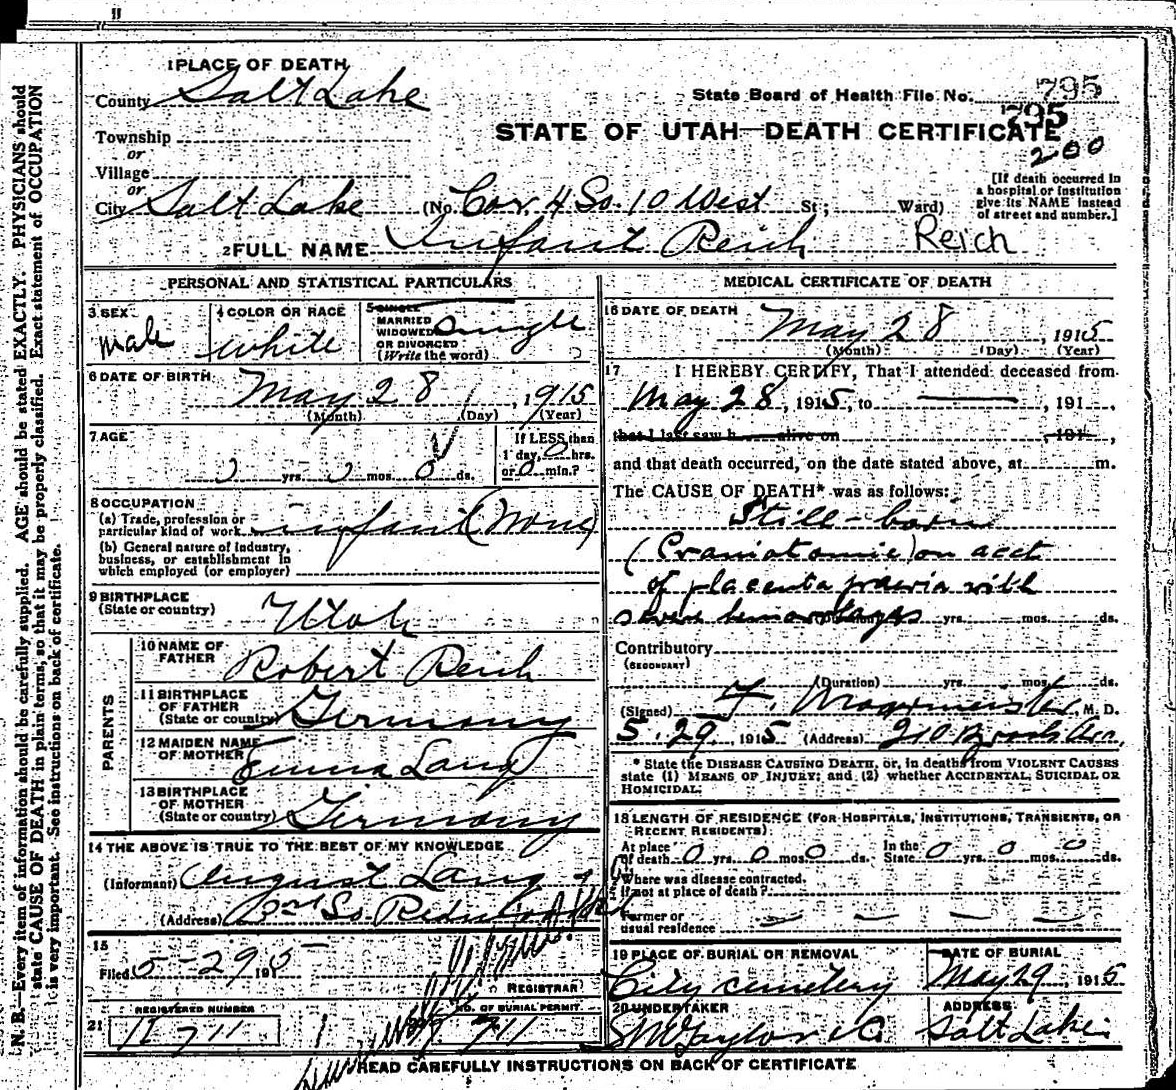 1 PLACE OF DEATH
County Salt Lake
State Board of Health File No. 795
795
Township
STATE OF UTAH—DEATH CERTIFICATE
or
200
Village
or
City Salt Lake (No. Cor. 4 So. 10 West St; Ward)
[If death occurred in
a hospital or institution
give its NAME instead
of street and number.]
2 FULL NAME Infant Reich Reich
PERSONAL AND STATISTICAL PARTICULARS
3 SEX
male
4 COLOR OR RACE
white
5 SINGLE
MARRIED
WIDOWED
OR DIVORCED
(Write the word)
single
6 DATE OF BIRTH
May 28, 1915
(Month) (Day) (Year)
7 AGE
yrs. mos. 0 ds.
If LESS than
1 day, 0 hrs.
or 0 min.?
8 OCCUPATION
(a) Trade, profession or
particular kind of work infant (None)
(b) General nature of industry,
business, or establishment in
which employed (or employer)
9 BIRTHPLACE
(State or country) Utah
PARENTS
10 NAME OF
FATHER Robert Reich
11 BIRTHPLACE
OF FATHER
(State or country) Germany
12 MAIDEN NAME
OF MOTHER Emma Lang
13 BIRTHPLACE
OF MOTHER
(State or country) Germany
14 THE ABOVE IS TRUE TO THE BEST OF MY KNOWLEDGE
(Informant) August Lang
(Address) So.
15
Filed 5-29 1915
REGISTRAR
REGISTERED NUMBER
NO. OF BURIAL PERMIT
21 711 711
MEDICAL CERTIFICATE OF DEATH
16 DATE OF DEATH
May 28, 1915
(Month) (Day) (Year)
17 I HEREBY CERTIFY, That I attended deceased from
May 28, 1915, to ———, 191 ,
that I last saw h alive on 191 ,
and that death occurred, on the date stated above, at m.
The CAUSE OF DEATH* was as follows:
Still-born
(Craniotomie) on acct
of placenta praevia with
severe hemorrhages yrs. mos. ds.
Contributory
(SECONDARY)
(Duration) yrs. mos. ds.
(Signed) F. M.D.
5.29, 1915 (Address) 210
* State the DISEASE CAUSING DEATH, or, in deaths from VIOLENT CAUSES
state (1) MEANS OF INJURY; and (2) whether ACCIDENTAL, SUICIDAL OR
HOMICIDAL.
18 LENGTH OF RESIDENCE (FOR HOSPITALS, INSTITUTIONS, TRANSIENTS, OR
RECENT RESIDENTS)
At place
of death 0 yrs. 0 mos. 0 ds.
In the
State 0 yrs. 0 mos. 0 ds.
Where was disease contracted,
if not at place of death?
Former or
usual residence
19 PLACE OF BURIAL OR REMOVAL
City cemetery
DATE OF BURIAL
May 29, 1915
20 UNDERTAKER
S M Taylor & Co
ADDRESS
Salt Lake
READ CAREFULLY INSTRUCTIONS ON BACK OF CERTIFICATE
N. B.—Every item of information should be carefully supplied. AGE should be stated EXACTLY. PHYSICIANS should
state CAUSE OF DEATH in plain terms, so that it may be properly classified. Exact statement of OCCUPATION
is very important. See instructions on back of certificate.